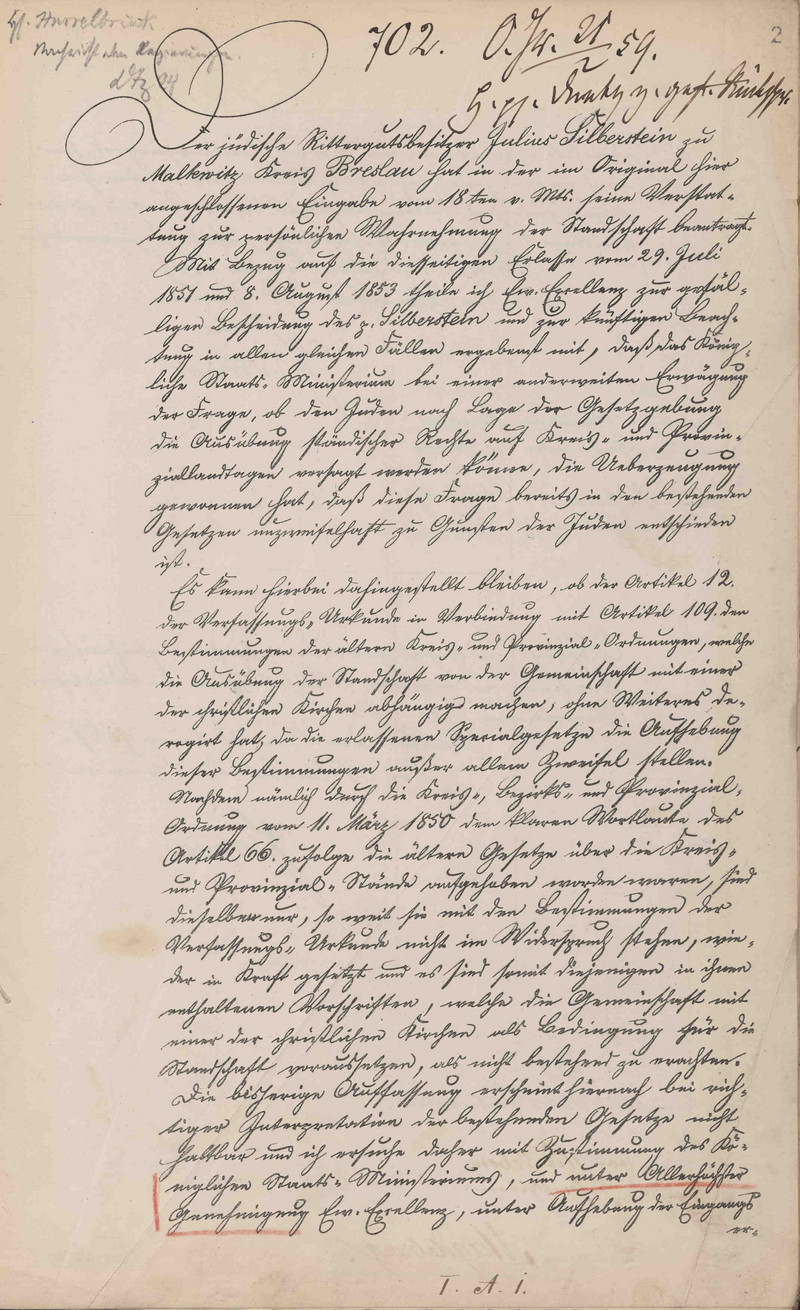 2
702. O. Pr. 21/2 59.
Der jüdische Rittergutsbesitzer Julius Silberstein zu
Malkwitz Kreis Breslau hat in der im Original hier
angeschlossenen Eingabe vom 18ten v. Mts. seine Verstat-
tung zur persönlichen Wahrnehmung der Standschaft beantragt.
Mit Bezug auf die diesseitigen Erlasse vom 29. Juli
1851 und 8. August 1853 theile ich Ew. Excellenz zur gefäl-
ligen Bescheidung des p. Silberstein und zur künftigen Beach-
tung in allen gleichen Fällen ergebenst mit, daß das König-
liche Staats-Ministerium bei einer anderweiten Erwägung
der Frage, ob den Juden nach Lage der Gesetzgebung
die Ausübung ständischer Rechte auf Kreis- und Provin-
ziallandtagen versagt werden könne, die Ueberzeugung
gewonnen hat, daß diese Frage bereits in den bestehenden
Gesetzen unzweifelhaft zu Gunsten der Juden entschieden
ist.
Es kann hierbei dahingestellt bleiben, ob der Artikel 12.
der Verfassungs-Urkunde in Verbindung mit Artikel 109. den
Bestimmungen der ältern Kreis- und Provinzial-Ordnungen, welche
die Ausübung der Standschaft von der Gemeinschaft mit einer
der christlichen Kirchen abhängig machen, ohne Weiteres de-
rogirt hat, da die erlassenen Specialgesetze die Aufhebung
dieser Bestimmungen außer allem Zweifel stellen.
Nachdem nämlich durch die Kreis-, Bezirks- und Provinzial-
Ordnung vom 11. März 1850 dem klaren Wortlaute des
Artikel 66. zufolge die ältern Gesetze über die Kreis-
und Provinzial-Stände aufgehoben worden waren, sind
dieselben nur, so weit sie mit den Bestimmungen der
Verfassungs-Urkunde nicht im Widerspruch stehen, wie-
der in Kraft gesetzt und es sind somit diejenigen in ihnen
enthaltenen Vorschriften, welche die Gemeinschaft mit
einer der christlichen Kirchen als Bedingung für die
Standschaft voraussetzen, als nicht bestehend zu erachten.
Die bisherige Auffassung erscheint hiernach bei rich-
tiger Interpretation der bestehenden Gesetze nicht
haltbar und ich ersuche daher mit Zustimmung des Kö-
niglichen Staats-Ministeriums, und unter Allerhöchster
Genehmigung Ew. Excellenz, unter Aufhebung der Eingangs
er-
I. A. I.